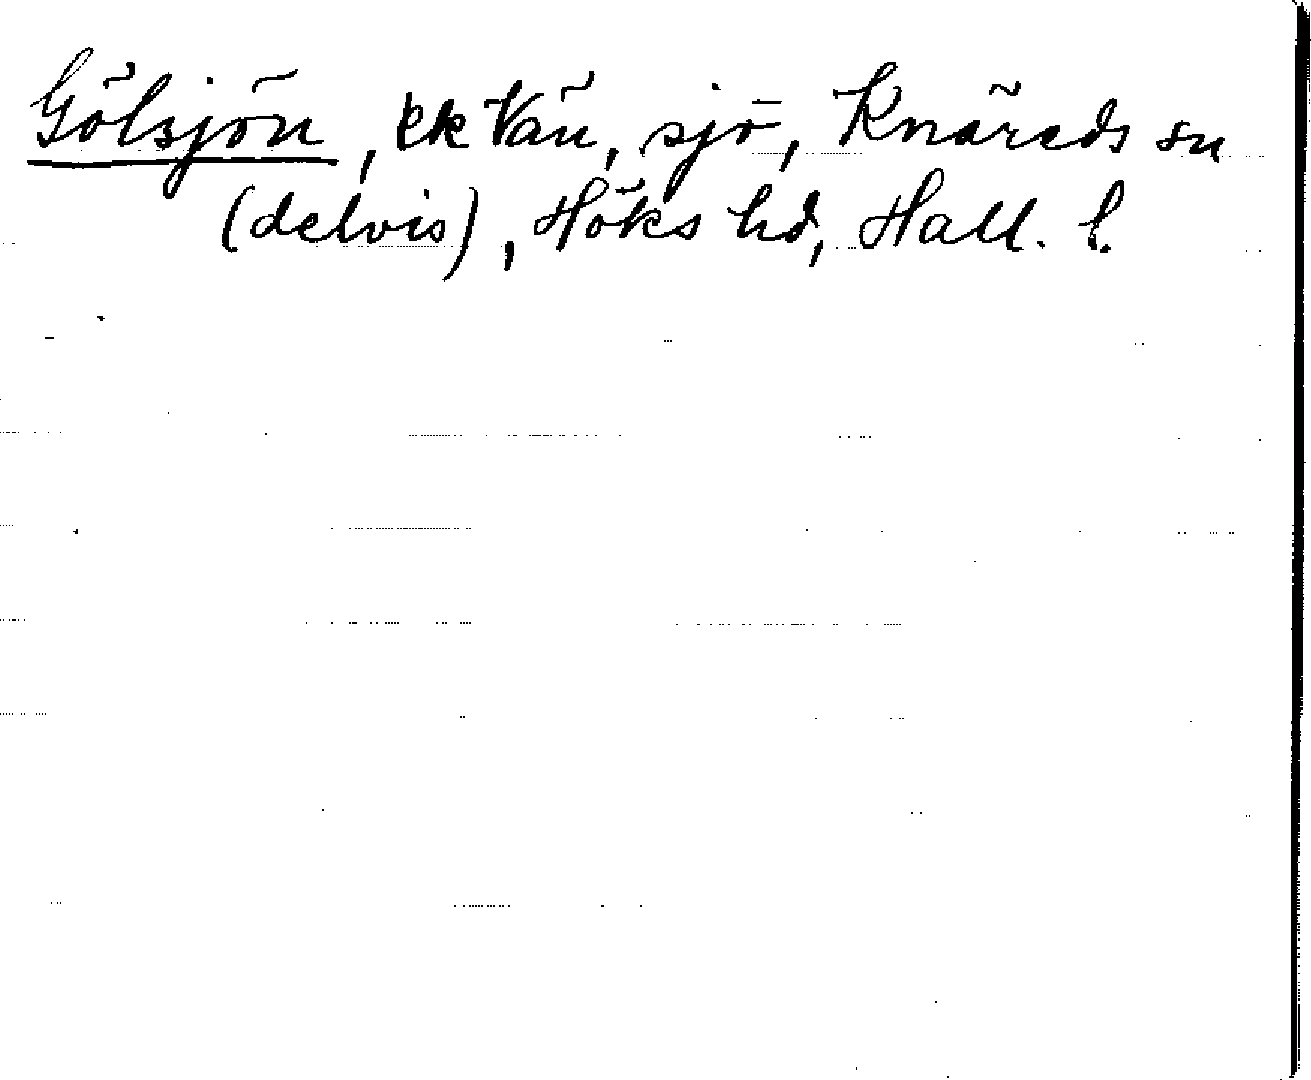 Gölsjön, ek Vän, sjö, Knäreds sn
(delvis), Höks hd, Hall. l.